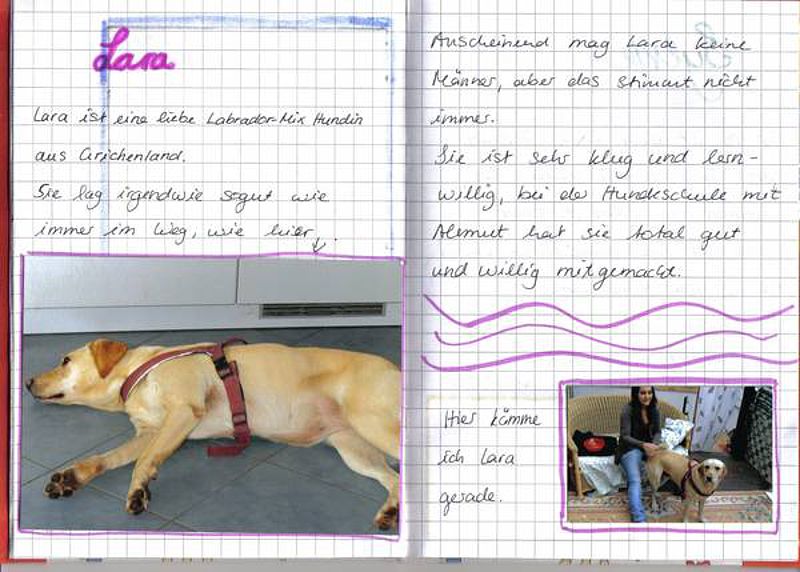 Lara
Lara ist eine liebe Labrador-Mix Hündin
aus Grichenland.
Sie lag irgendwie sogut wie
immer im Weg, wie hier
Anscheinend mag Lara keine
Männer, aber das stimmt nicht
immer.
Sie ist sehr klug und lern-
willig, bei der Hundeschule mit
Almut hat sie total gut
und willig mitgemacht.
Hier kämme
ich Lara
gerade.